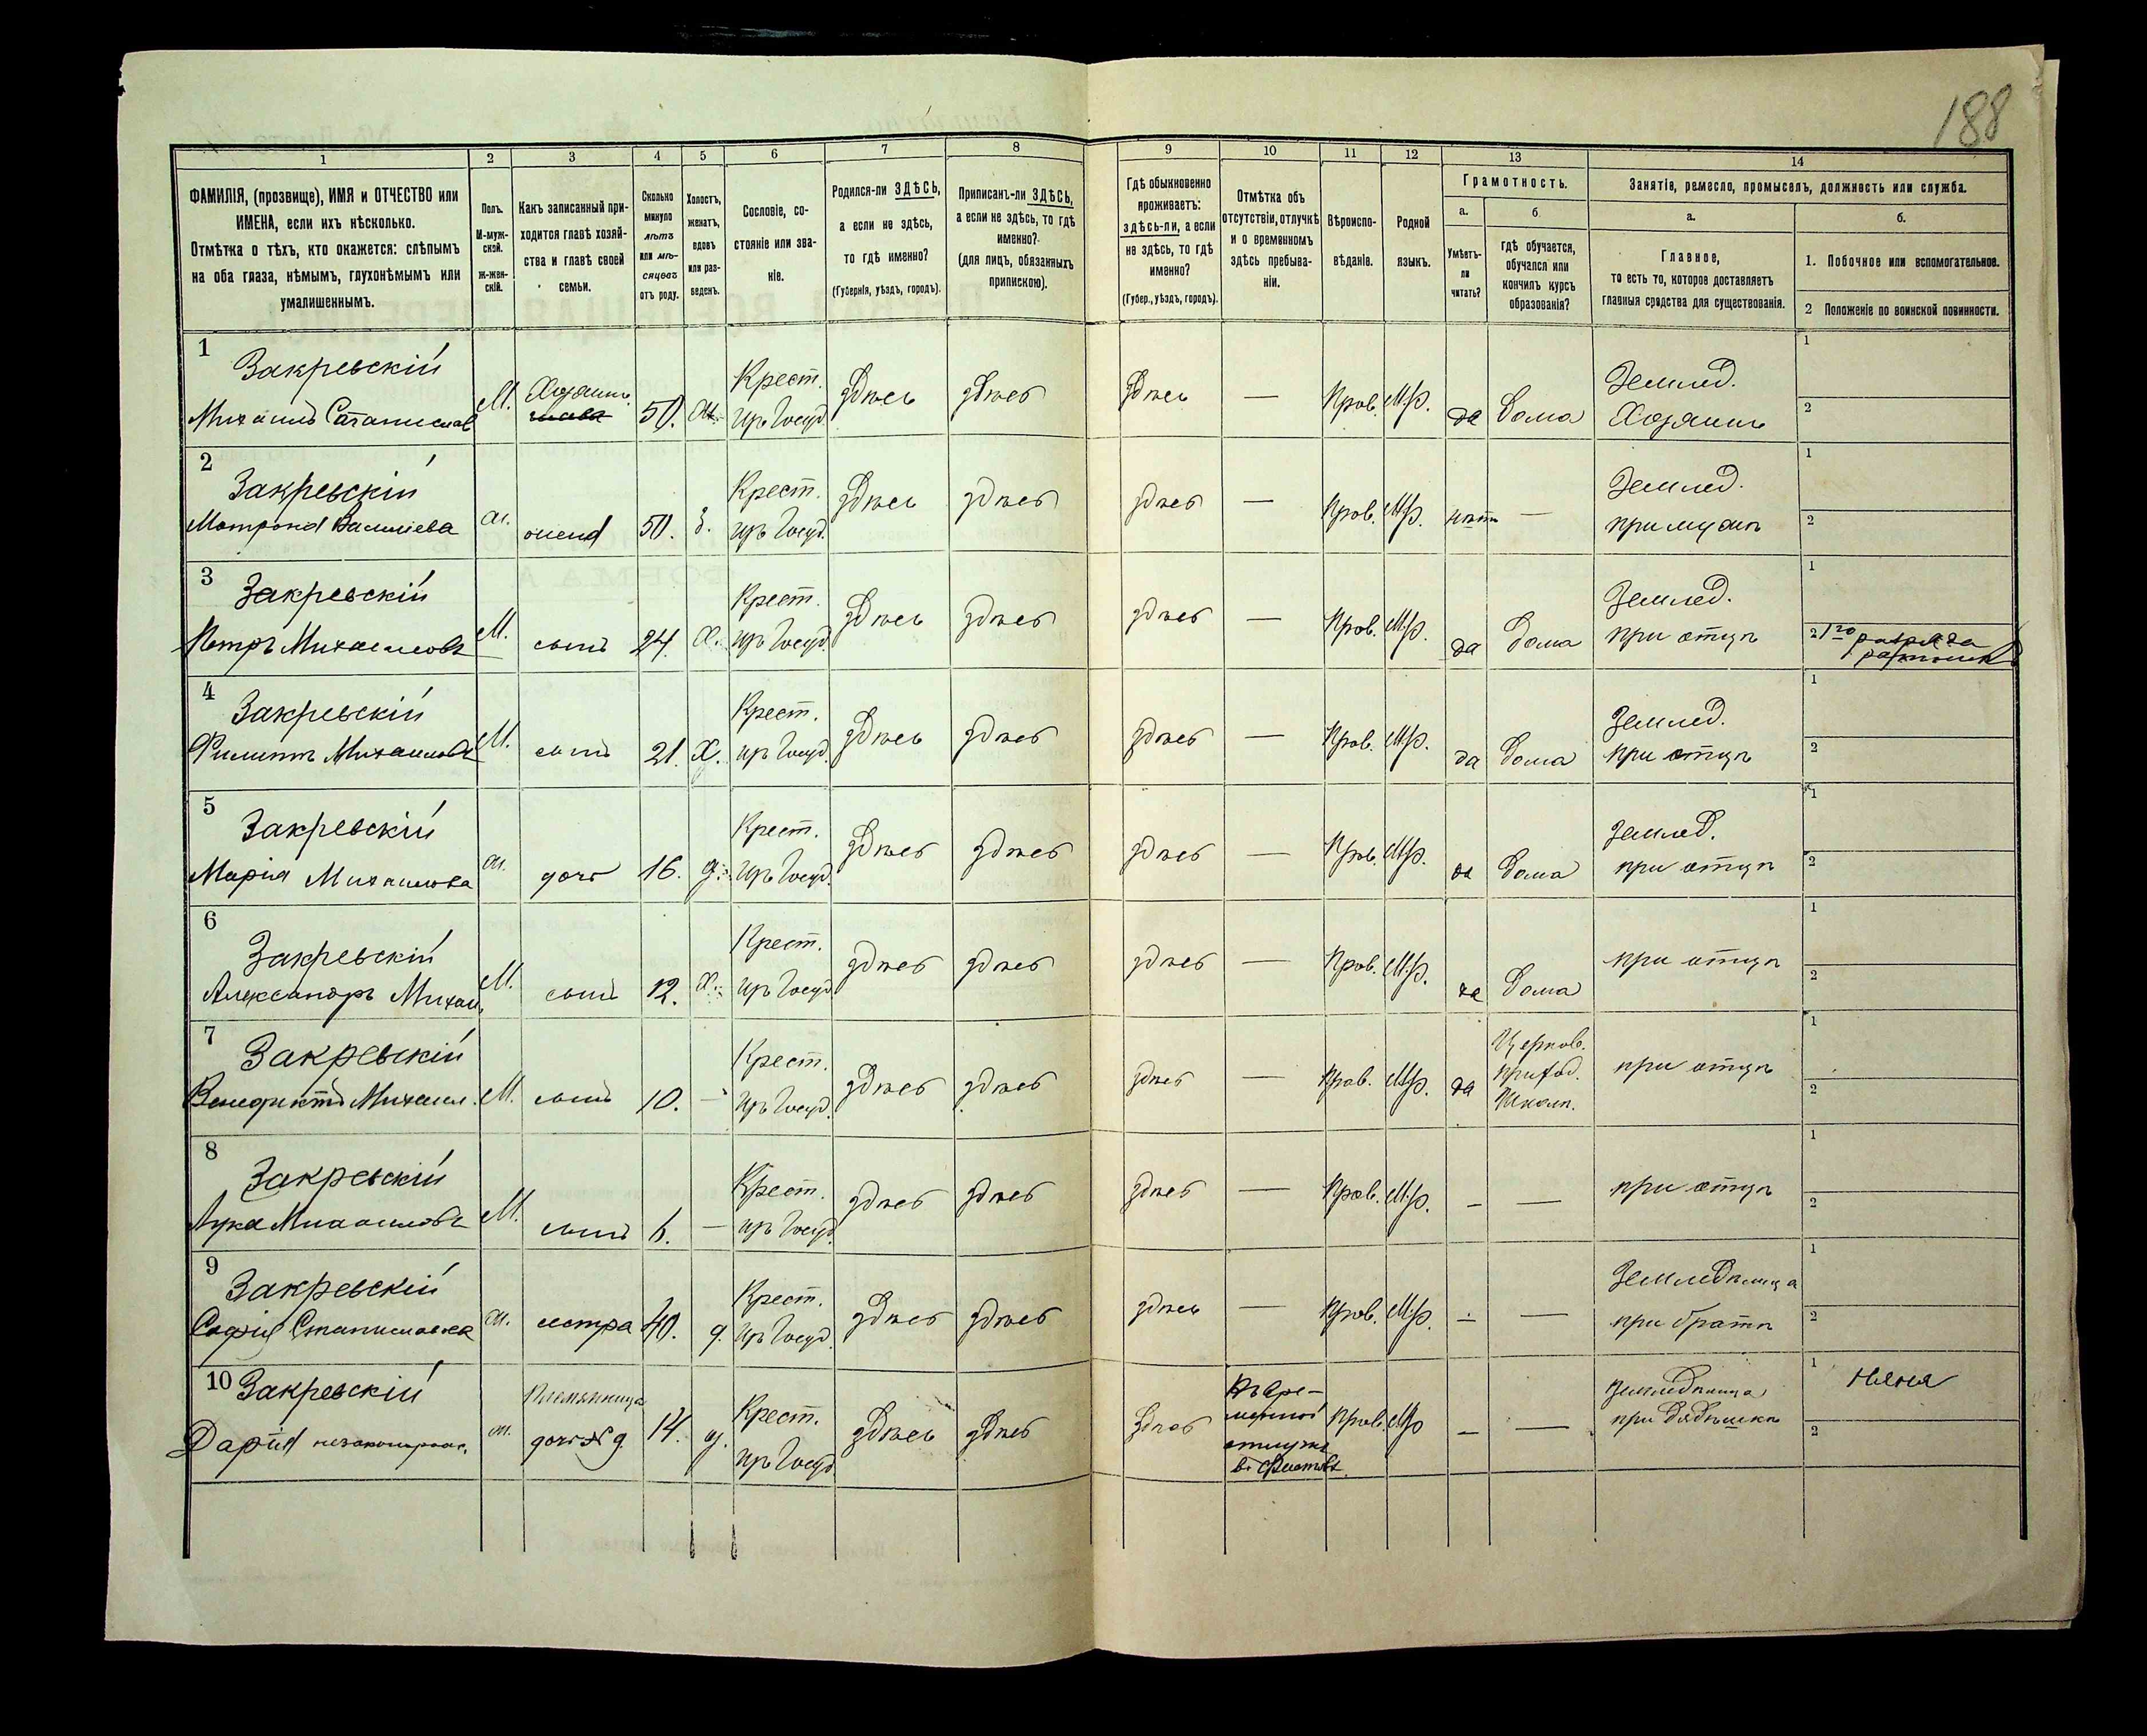 188
1 2 3 4 5 6 7 8 9 10 11 12 13 14
ФАМИЛІЯ, (прозвище), ИМЯ и ОТЧЕСТВО или
ИМЕНА, если ихъ нѣсколько.
Отмѣтка о тѣхъ, кто окажется: слѣпымъ
на оба глаза, нѣмымъ, глухонѣмымъ или
умалишеннымъ.
Полъ.
М-муж-
ской.
Ж-жен-
скій.
Какъ записанный при-
ходится главѣ хозяй-
ства и главѣ своей
семьи.
Сколько
минуло
лѣтъ
или мѣ-
сяцевъ
отъ роду.
Холостъ,
женатъ,
вдовъ
или раз-
веденъ.
Сословіе, со-
стояніе или зва-
ніе.
Родился-ли ЗДѢСЬ,
а если не здѣсь,
то гдѣ именно?
(Губернія, уѣздъ, городъ).
Приписанъ-ли ЗДѢСЬ,
а если не здѣсь, то гдѣ
именно?
(для лицъ, обязанныхъ
припискою).
Гдѣ обыкновенно
проживаетъ:
здѣсь-ли, а если
не здѣсь, то гдѣ
именно?
(Губер., уѣздъ, городъ).
Отмѣтка объ
отсутствіи, отлучкѣ
и о временномъ
здѣсь пребыва-
ніи.
Вѣроиспо-
вѣданіе.
Родной
языкъ.
Грамотность.
а.
Умѣетъ-
ли
читать?
б
гдѣ обучается,
обучался или
кончилъ курсъ
образованія?
Занятіе, ремесло, промыселъ, должность или служба.
а.
Главное,
то есть то, которое доставляетъ
главныя средства для существованія.
б.
1. Побочное или вспомогательное.
2 Положеніе по воинской повинности.
1
Закревскій
Михаилъ Станислав
М.
Хозяинъ
50.
Крест.
изъ Госуд.
здѣсь
здѣсь
здѣсь
—
Прав.
Мр.
да
дома
Землед.
Хозяинъ
1
2
2
Закревскій
Матрона Васильева
ж.
жена
50.
з.
Крест.
изъ Госуд.
здѣсь
здѣсь
здѣсь
—
Прав.
Мр.
нѣтъ
—
Землед.
при мужѣ
1
2
3
Закревскій
Петръ Михаиловъ
М.
сынъ
24.
Х.
Крест.
изъ Госуд.
здѣсь
здѣсь
здѣсь
—
Прав.
Мр.
да
дома
Землед.
при отцѣ
1
2 1го разряда
ратникъ
4
Закревскій
Филиппъ Михаиловъ
М.
сынъ
21.
Х.
Крест.
изъ Госуд.
здѣсь
здѣсь
здѣсь
—
Прав.
Мр.
да
дома
Землед.
при отцѣ
1
2
5
Закревскій
Марія Михаилова
ж.
дочь
16.
д.
Крест.
изъ Госуд.
здѣсь
здѣсь
здѣсь
—
Прав.
Мр.
да
дома
Землед.
при отцѣ
1
2
6
Закревскій
Александръ Михаи.
М.
сынъ
12.
Х.
Крест.
изъ Госуд.
здѣсь
здѣсь
здѣсь
—
Прав.
Мр.
да
дома
при отцѣ
1
2
7
Закревскій
Венедиктъ Михаил.
М.
сынъ
10.
—
Крест.
изъ Госуд.
здѣсь
здѣсь
здѣсь
—
Прав.
Мр.
да
Церков.
приход.
Школѣ.
при отцѣ
1
2
8
Закревскій
Лука Михаиловъ
М.
сынъ
6.
—
Крест.
изъ Госуд.
здѣсь
здѣсь
здѣсь
—
Прав.
Мр.
—
—
при отцѣ
1
2
9
Закревскій
Софія Станиславова
ж.
сестра
40.
д.
Крест.
изъ Госуд.
здѣсь
здѣсь
здѣсь
—
Прав.
Мр.
—
—
Земледѣлица
при братѣ
1
2
10
Закревскій
Дарія незаконорож.
ж.
племянница
дочь
14.
д.
Крест.
изъ Госуд.
здѣсь
здѣсь
здѣсь
въ вре-
менной
отлучкѣ
Прав.
Мр
—
—
Земледѣлица
при дядюшкѣ
1 няня
2